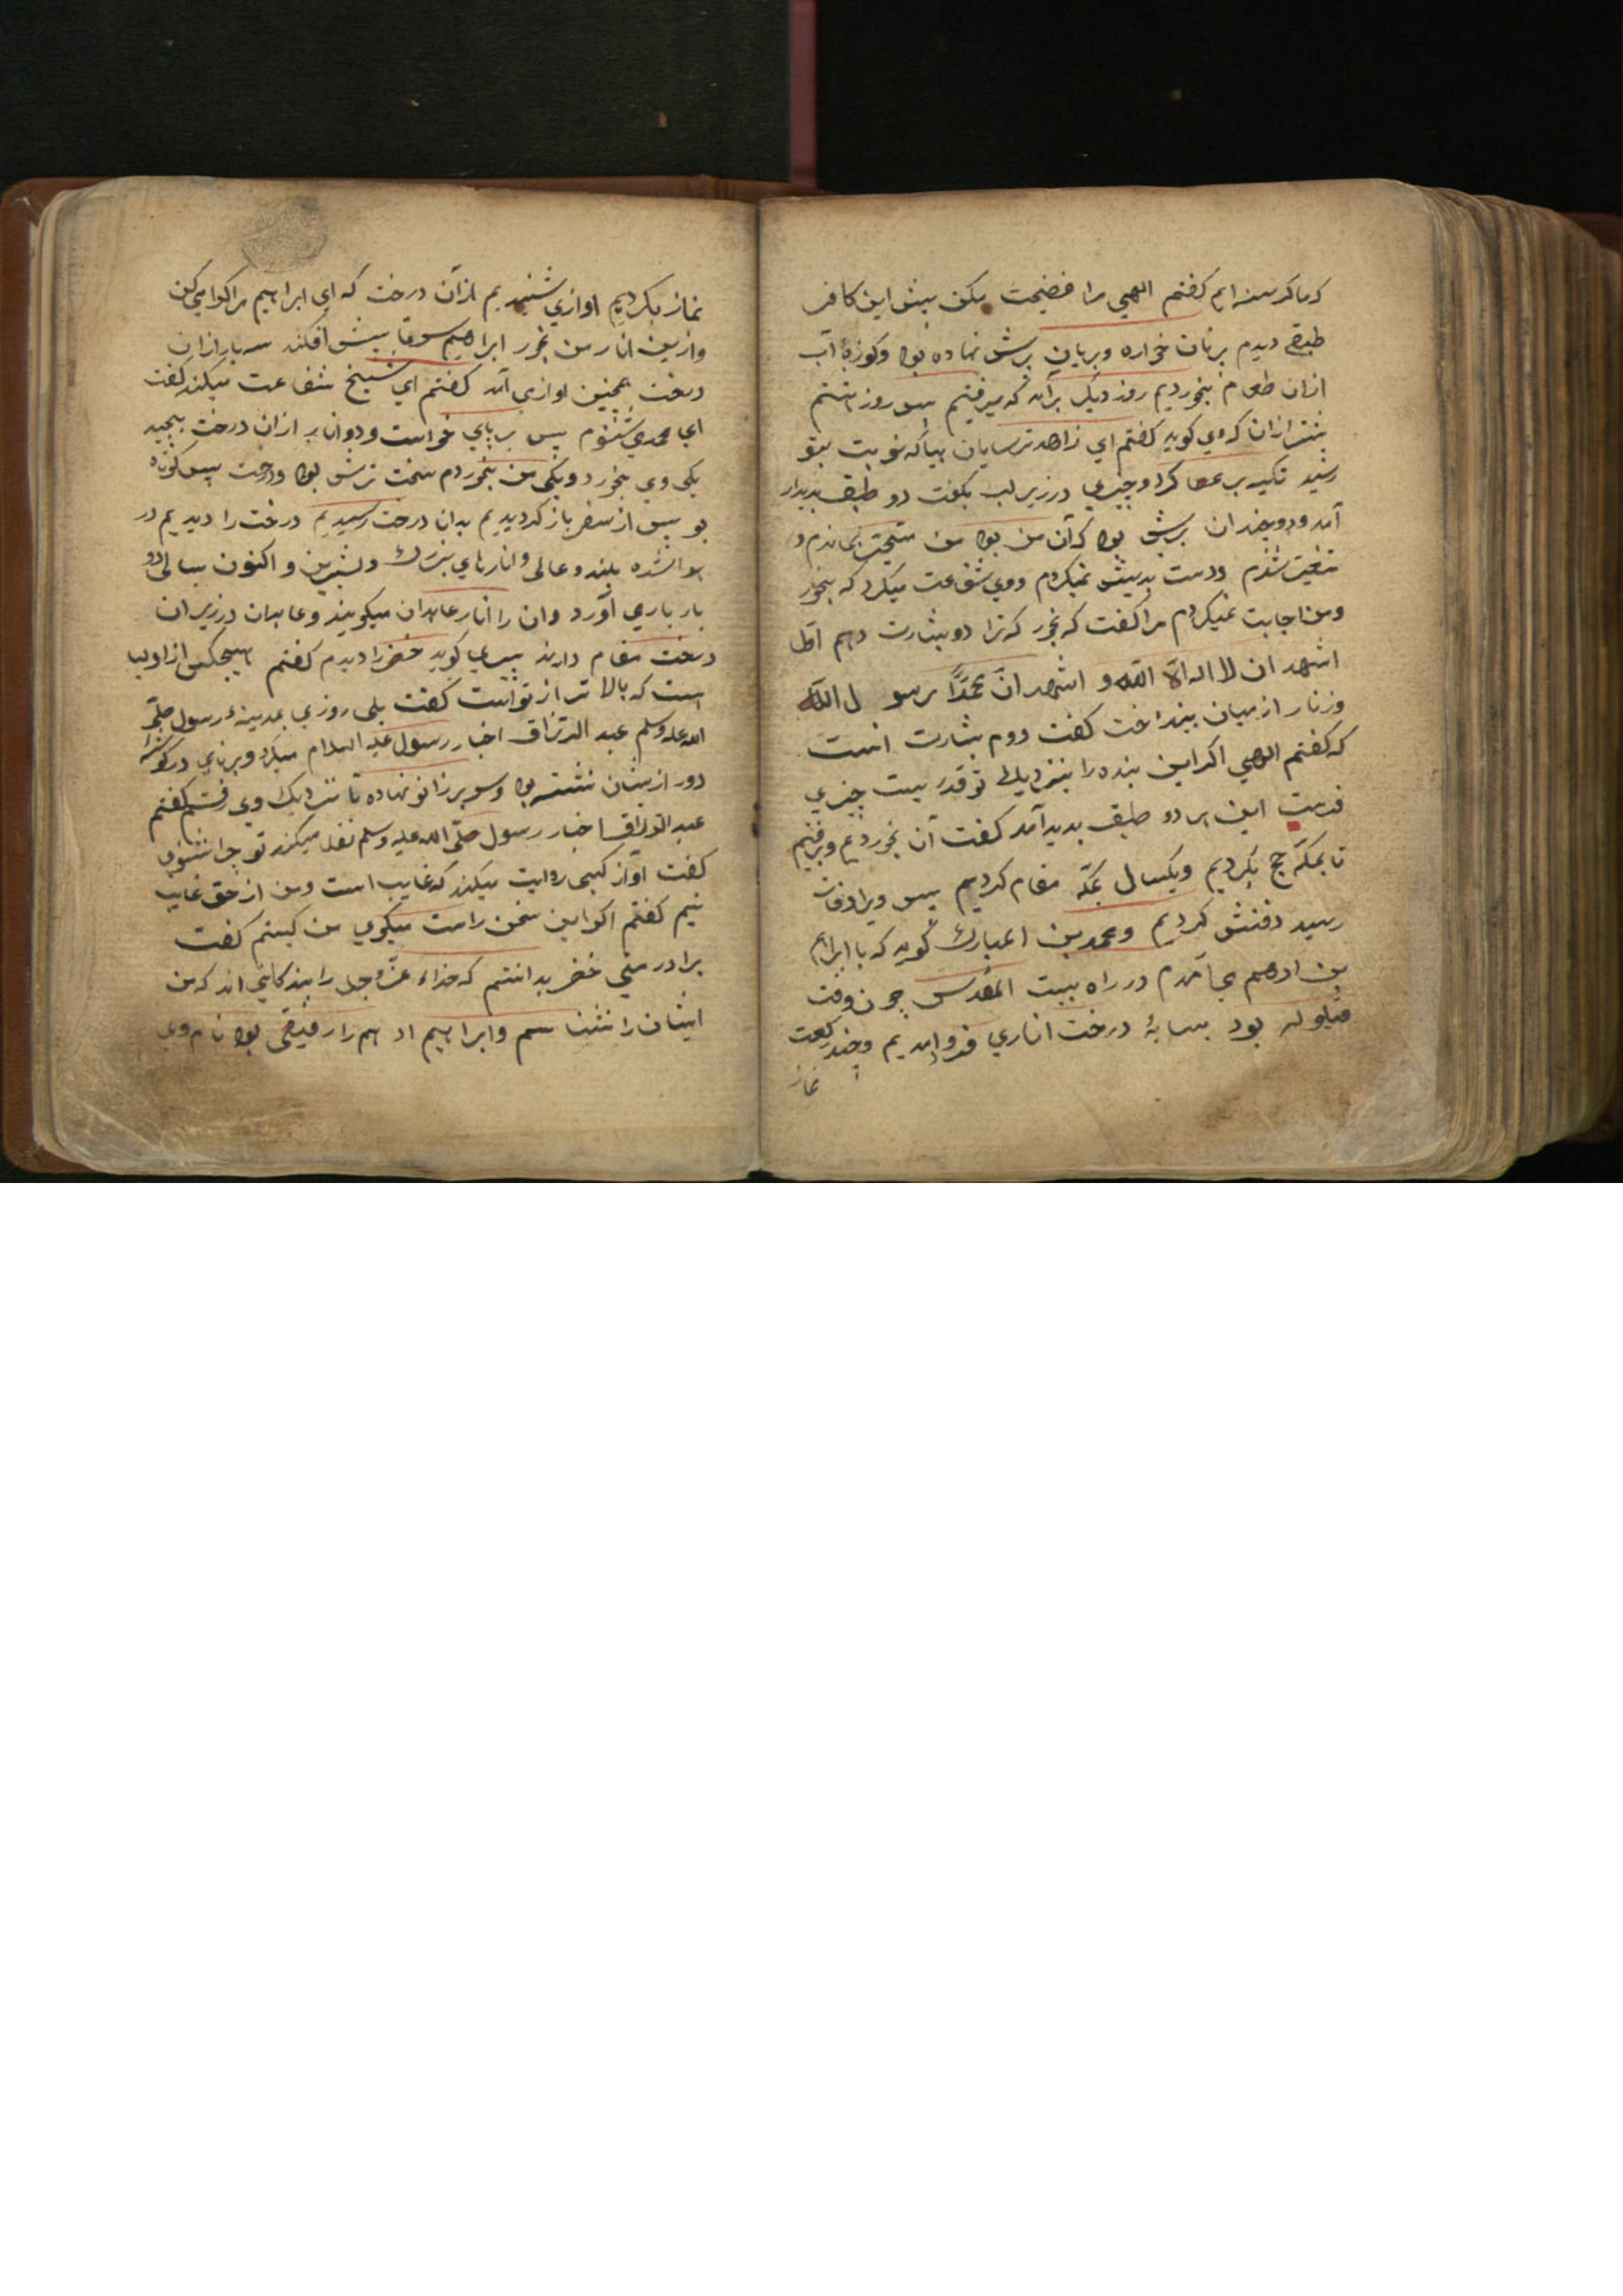 که ما گرسنه ایم گفتم الهی مرا فضیحت مکن پیش این کافر
طبقی دیدم برنان خواره وبریان برش نهاده بود وکوزهٔ آب
ازان طعام بخوردیم روز دیگر برآمد که میرفتیم پس روز هشتم
پیش ازان که وی گوید گفتم ای زاهد ترسایان بیا که نوبت بتو
رسید تکیه بر عصا کرد وچیزی در زیر لب بگفت دو طبق پدیدار
آمد و دو چندان برش بود که آن من بود من متحیر بماندم و
متغیر شدم ودست پدپیش نمیکردم ووی شفاعت میکرد که بخور
ومن اجابت نمیکردم مرا گفت که بخور که ترا دو بشارت دهم اوّل
اشهد ان لا اله الّا اللّه و اشهد انّ محمّدًا رسو ل اللّه
وزنار از میان بینداخت گفت دوم بشارت انست
که گفتم الهی اگر این بنده را بنزدیک تو قدریست چیزی
فرست این هر دو طبق پدید آمد گفت آن بخوردیم وبرفتیم
تا بمکّه حج بکردیم ویکسال بمکّه مقام کردیم پس ویرا وفات
رسید دفنش کردیم ومحمد بن المبارک گوید که با ابراهیم
بن ادهم می آمدم در راه بیت المقدس چون وقت
قیلوله بود بسایهٔ درخت اناری فرو امدیم وچند رکعت
نماز
نماز بکردیم اوازی شنیدیم از آن درخت که ای ابراهیم مرا گرامی کن
وازین انار من بخور ابراهیم سر در پیش افکند سه بار ازان
درخت همچنین اوازی آمد گفتم ای شیخ شفاعت میکند گفت
ای محمد می شنوم پس بر پای خواست ودو انار ازان درخت بچید
یکی وی بخورد ویکی من بخوردم سخت ترش بود ودرخت پس کوتاه
بود پس از سفر باز گردیدیم بدان درخت رسیدیم درخت را دیدیم در
هوا شده بلند وعالی وانارهای بزرک وشیرین واکنون سالی دو
بار باری آورد وان را انار عابدان میگویند وعابدان در زیر ان
درخت مقام دارند پس می گوید خضر را دیدم گفتم هیچکس از اولیا
هست که بالا تر از تو است گفت بلی روزی بمدینهٔ رسول صلّی
الله علیه وسلم عبد الرزاق اخبار رسول علیه السلام میکرد وبرنایی در گوشهٔ
دور از یشان نشسته بود وسر بر زانو نهاده تا نزدیک وی رفتم گفتم
عبد الرزاق اخبار رسول صلّی الله علیه وسلم نقل میکند تو چرا نشنوی
گفت او از کسی روایت میکند که غایب است ومن از حق غایب
نیم گفتم اگر این سخن راست میگوی من کیستم گفت
برادر منی خضر بدانستم که خداء عزّ وجل را بندگانی اند که من
ایشان را نشناسم وابراهیم ادهم را رفیقی بود نام وی